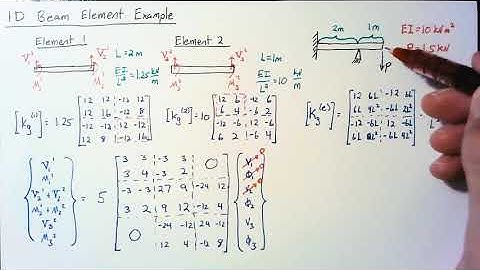 1D Beam Element Example
Element 1
Element 2
2m 1m
EI = 10 kNm²
P = 1.5 kN
P
V₁¹ V₂¹
M₁¹ M₂¹
L = 2m
EI/L³ = 1.25 kN/m
L = 1m
EI/L³ = 10 kN/m
[kg⁽¹⁾] = 1.25
12 12 -12 12
12 16 -12 8
-12 -12 12 -12
12 8 -12 16
[kg⁽²⁾] = 10
12 6 -12 6
6 4 -6 2
-12 -6 12 -6
6 2 -6 4
[kg⁽ᵉ⁾] =
12 6L -12 6L
6L 4L² -6L 2L²
-12 -6L 12 -6L
6L 2L² -6L 4L²
V₁¹
M₁¹
V₂¹ + V₂²
M₂¹ + M₂²
V₃²
M₃²
= 5
3 3 -3 3 0
3 4 -3 2
-3 -3 27 9 -24 12
3 2 9 12 -12 4
0 -24 -12 24 -12
12 4 -12 8
V₁
φ₁
V₂
φ₂
V₃
φ₃